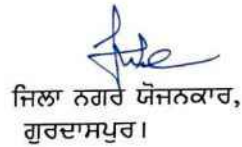 ਜਿਲਾ ਨਗਰ ਯੋਜਨਕਾਰ,
ਗੁਰਦਾਸਪੁਰ।